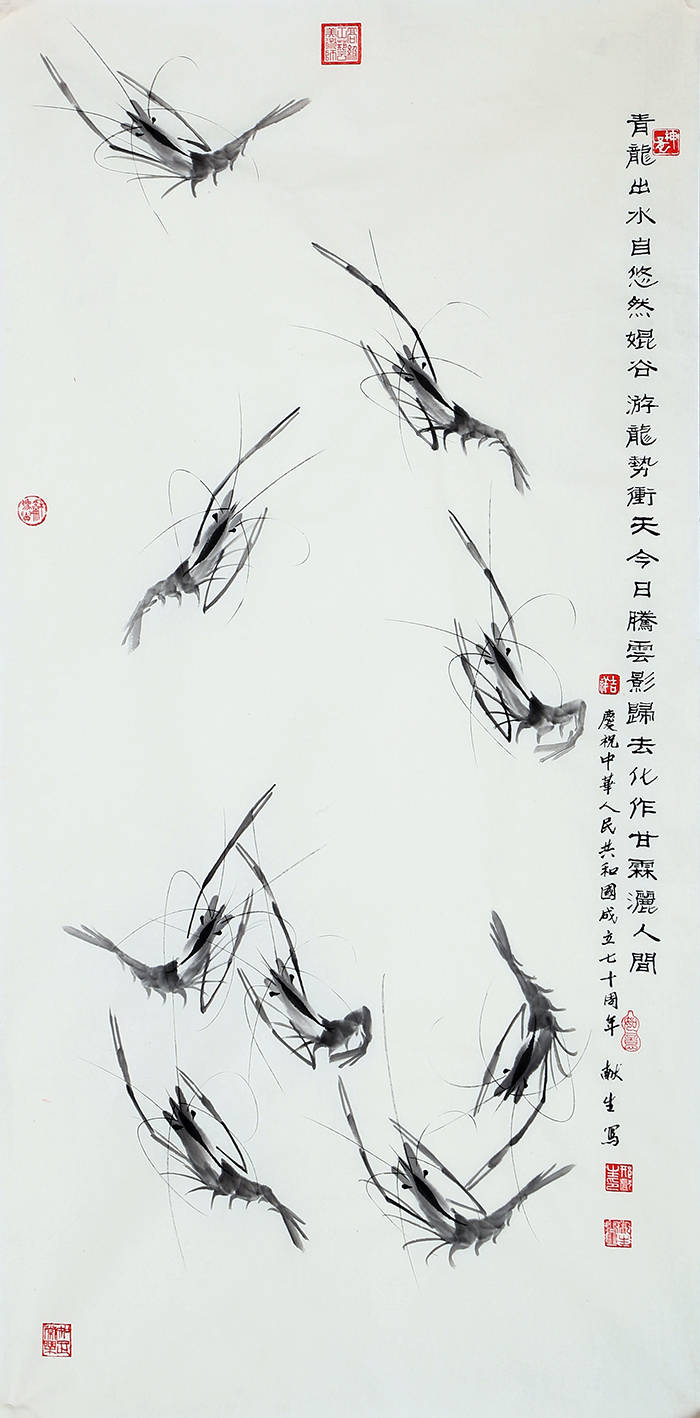 青龍出水自悠然婫谷游龍勢衝天今日騰雲影歸去化作甘霖灑人間
慶祝中華人民共和國成立七十周年 献生寫